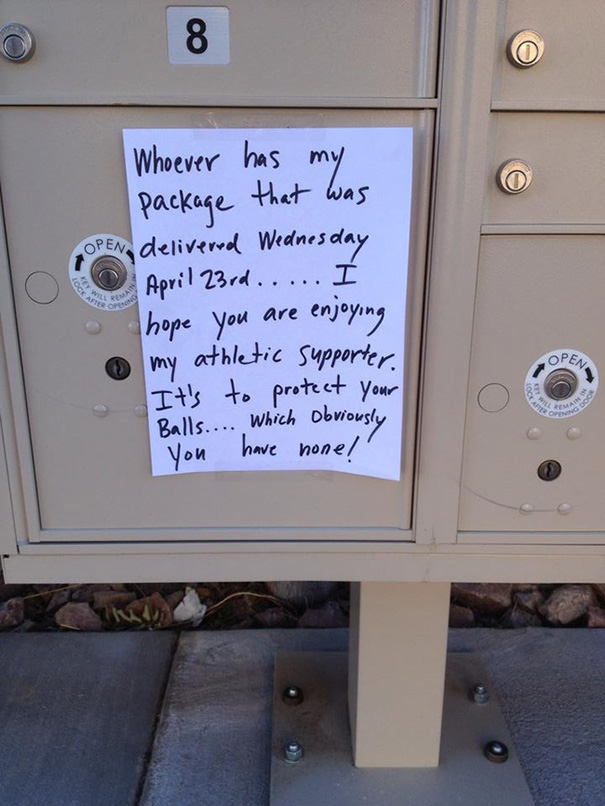 8
Whoever has my
package that was
delivered Wednesday
April 23rd..... I
hope you are enjoying
my athletic supporter.
It's to protect your
Balls.... which Obviously
You have none!
OPEN
KEY WILL REMAIN IN
LOCK AFTER OPENING
OPEN
KEY WILL REMAIN IN
LOCK AFTER OPENING DOOR